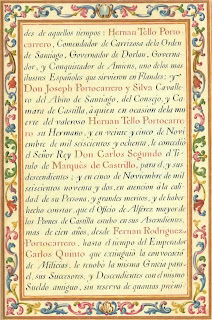 des de aquellos tiempos: Hernan Tello Porto
carrero, Comendador de Carrizosa de la Orden
de Santiago, Governador de Dorlan, Governa
dor, y Conquistador de Amiens, uno de los mas
Ilustres Españoles que sirvieron en Flandes: y a
Don Joseph Portocarrero y Silva Cavalle
ro del Abito de Santiago, del Consejo, y Cama
ra de Castilla, aquien en occasion de una mu
erte del valeroso Hernan Tello Portocarre
ro su Hermano, y en veinte y cinco de Novi
embre de mil seiscientos, y ochenta, le concedio
el Señor Rey Don Carlos Segundo el Ti
tulo de Marqués de Castrillo, para sí, y sus
descendientes: y en cinco de Noviembre de mil
seiscientos noventa y dos, en atencion a la cali
dad de su Persona, y grandes meritos, y de haber
hecho constar, que el Oficio de Alferez mayor de
los Peones de Castilla estubo en sus Ascendientes,
mas de cien años, desde Fernan Rodriguez
Portocarrero, hasta el tiempo del Emperador
Carlos Quinto que extinguió la convocacion
de Milicias, le renobo la misma Gracia para
el, sus Successores, y Descendientes con el mismo
Sueldo antiguo, sin reserva de quantas preemi